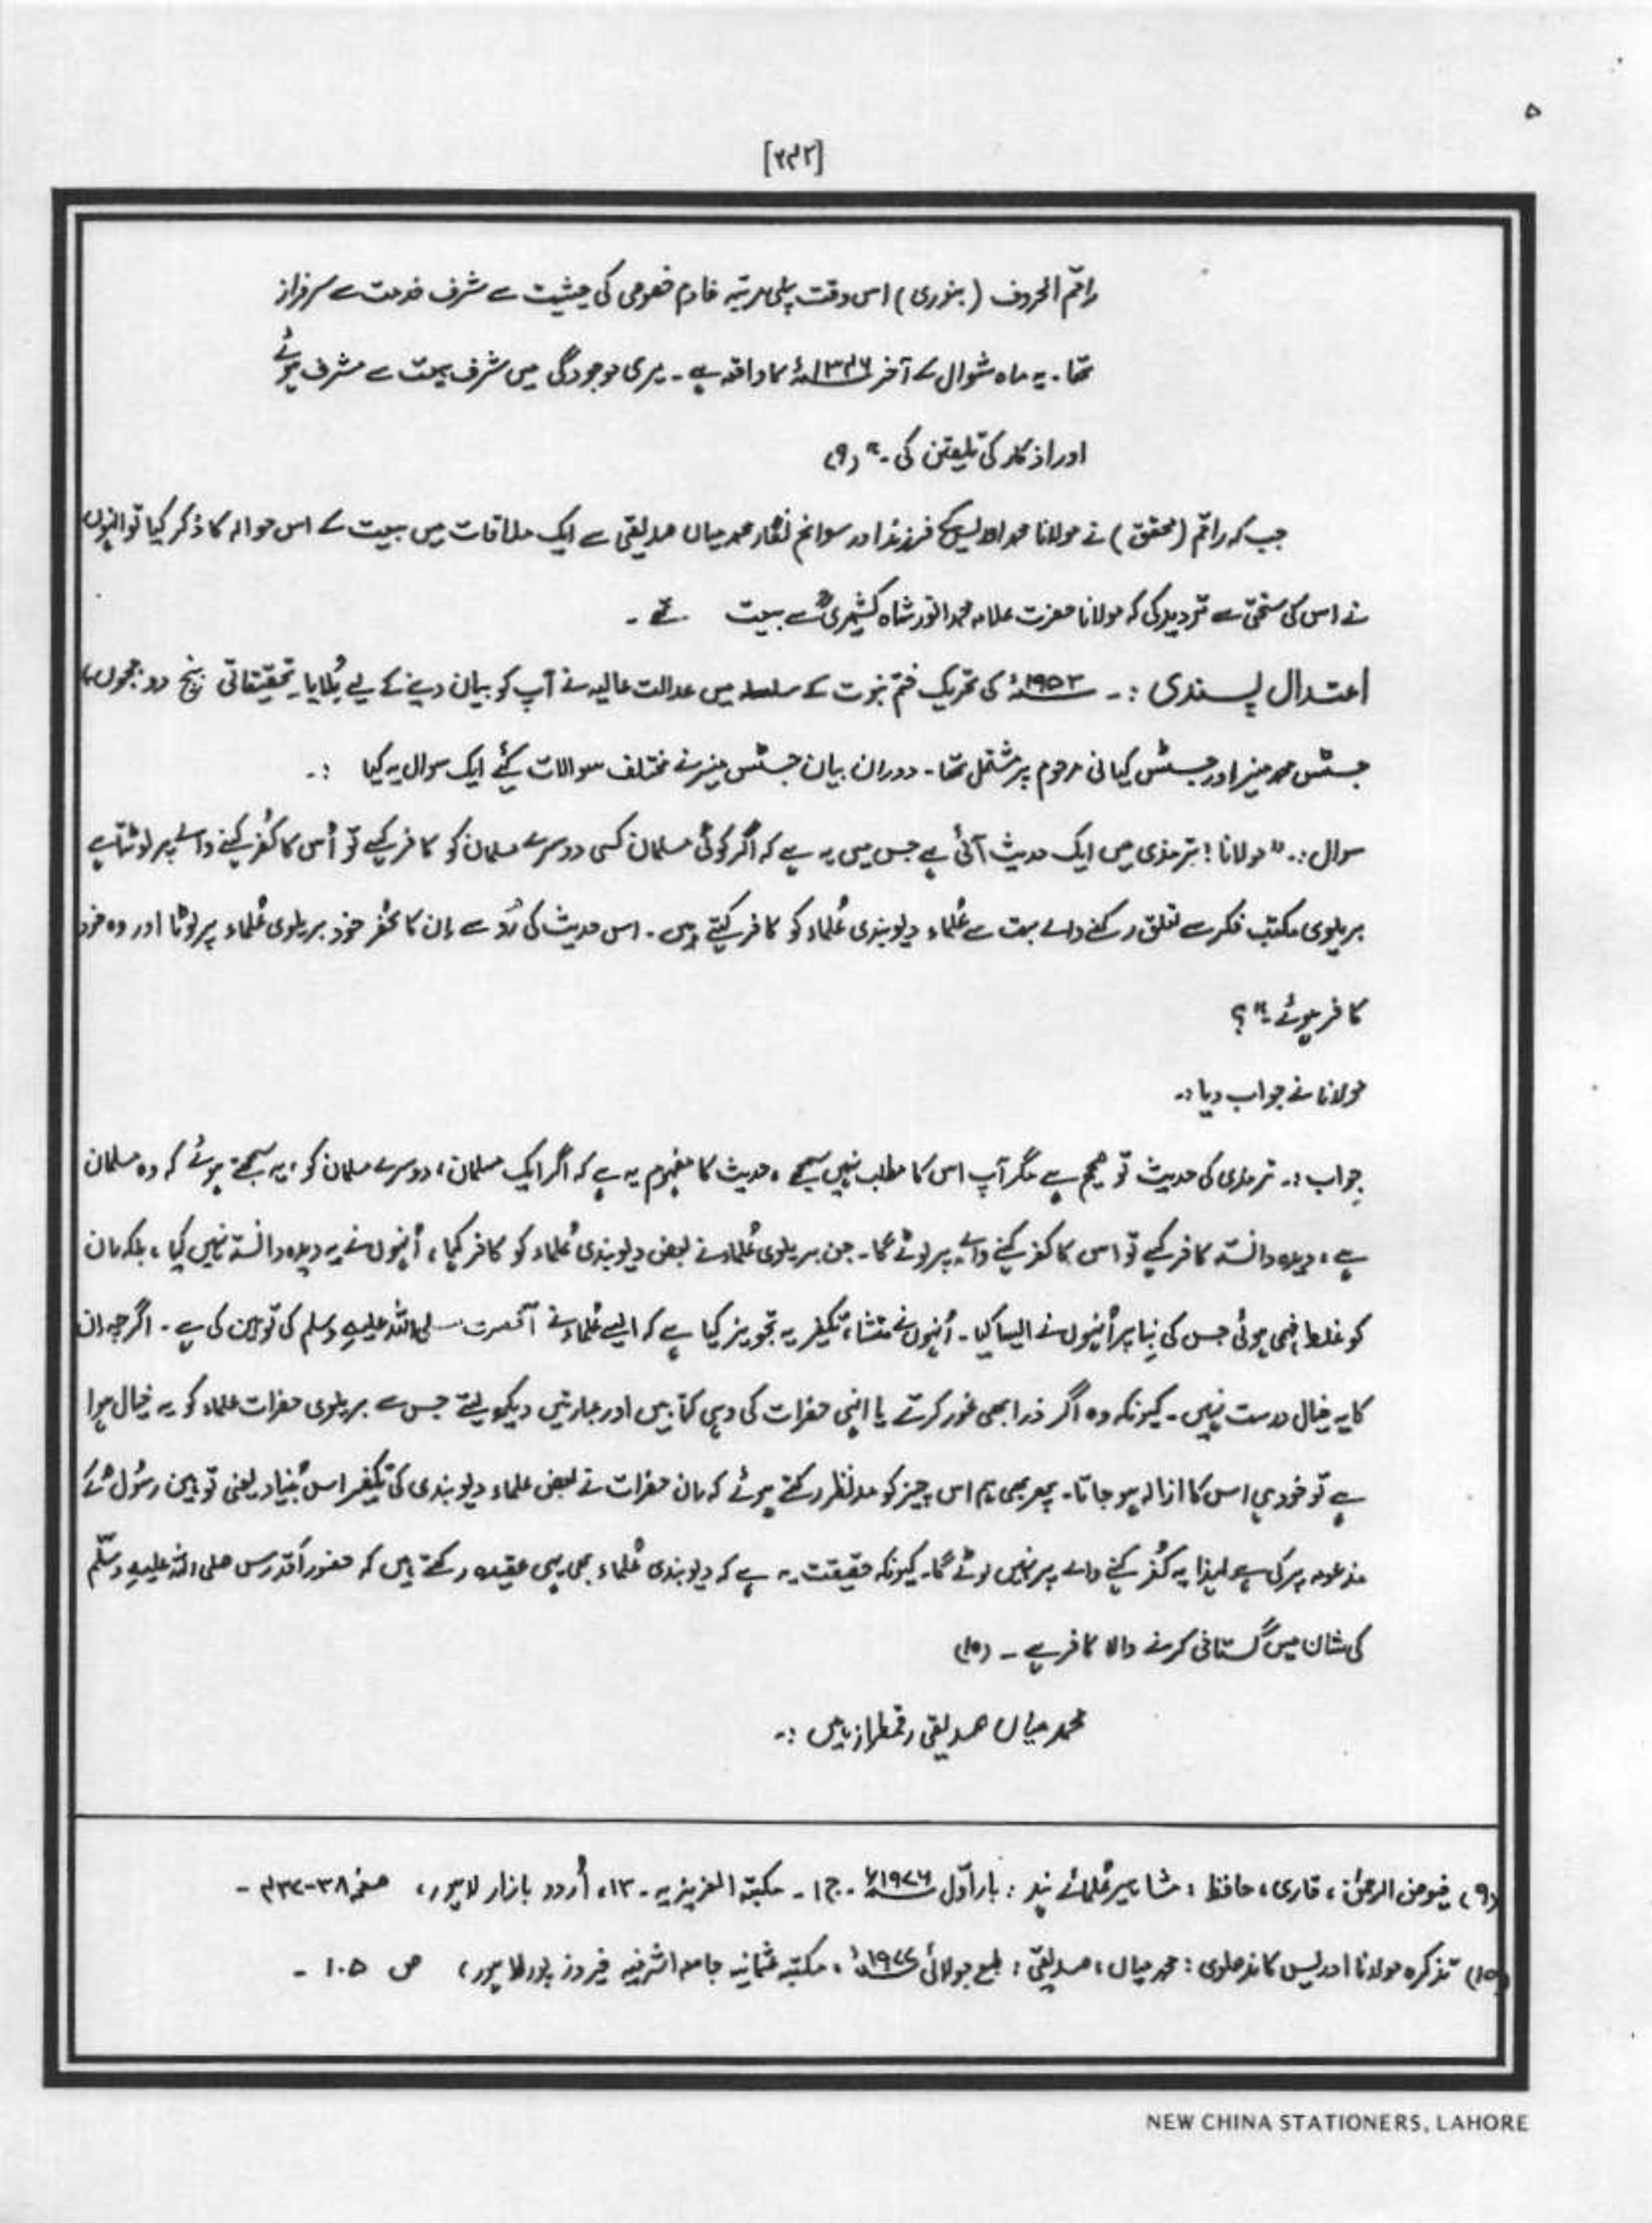 ۵
[۲۴۲]
راقم الحروف (بنوری) اس وقت پہلی مرتبہ خادم خصوصی کی حیثیت سے شرف خدمت سے سرفراز
تھا ۔ یہ ماہ شوال کے آخر ۱۳۴۶ھ کا واقعہ ہے ۔ میری موجودگی میں شرف بیعت سے مشرف ہوئے
اور اذکار کی تلیقن کی ۔" (۹)
جب کہ راقم (محقق) نے مولانا محمد ادریسؒ کے فرزند اور سوانح نگار محمد میاں صدیقی سے ایک ملاقات میں بیعت کے اس حوالہ کا ذکر کیا تو انہوں
نے اس کی سختی سے تردید کی کہ مولانا حضرت علامہ محمد انور شاہ کشمیریؒ سے بیعت تھے ۔
اعتدال پسندی :۔ ۱۹۵۳ء کی تحریک ختم نبوت کے سلسلہ میں عدالت عالیہ نے آپ کو بیان دینے کے لیے بُلایا۔ تحقیقاتی بنچ دو ججوں
جسٹس محمد منیر اور جسٹس کیانی مرحوم پر مشتمل تھا ۔ دوران بیان جسٹس منیر نے مختلف سوالات کیٔے ایک سوال یہ کیا :۔
سوال :۔ "مولانا ! ترمذی میں ایک حدیث آئی ہے جس میں یہ ہے کہ اگر کوئی مسلمان کسی دوسرے مسلمان کو کافر کہے تو اُس کا کُفر کہنے والے پر لوٹتا ہے
بریلوی مکتب فکر سے تعلق رکھنے والے بہت سے عُلماء دیوبندی عُلماء کو کافر کہتے ہیں ۔ اس حدیث کی رُو سے اِن کا کفر خود بریلوی عُلماء پر لوٹا اور وہ خود
کافر ہوئے ۔" ؟
مولانا نے جواب دیا :۔
جواب :۔ ترمذی کی حدیث تو صحیح ہے مگر آپ اس کا مطلب نہیں سمجھے ، حدیث کا مفہوم یہ ہے کہ اگر ایک مسلمان ، دوسرے مسلمان کو ، یہ سمجھتے ہوئے کہ وہ مسلمان
ہے ، دیدہ دانستہ کافر کہے تو اس کا کفر کہنے والے پر لوٹے گا ۔ جن بریلوی عُلماء نے بعض دیوبندی عُلماء کو کافر کہا ، اُنہوں نے یہ دیدہ دانستہ نہیں کہا ، بلکہ ان
کو غلط فہمی ہوئی جس کی بِنا پر اُنہوں نے ایسا کہا ۔ اُنہوں نے منشاء تکفیر یہ تجویز کیا ہے کہ ایسے عُلماء نے آنحضرت صلی اللہ علیہ وسلم کی توہین کی ہے ۔ اگرچہ ان
کا یہ خیال درست نہیں ۔ کیونکہ وہ اگر ذرا بھی غور کرتے یا انہی حضرات کی دہی کتابیں اور عبارتیں دیکھ لیتے جس سے بریلوی حضرات علماء کو یہ خیال ہوا
ہے تو خود ہی اس کا ازالہ ہو جاتا ۔ پھر بھی ہم اس چیز کو مدنظر رکھتے ہوئے کہ ان حضرات نے بعض علماء دیوبندی کی تکفیر اس بُنیاد یعنی توہین رسُولؐ کے
مذعومہ پر کی ہے لہذا یہ کُفر کہنے والے پر نہیں لوٹے گا ۔ کیونکہ حقیقت یہ ہے کہ دیوبندی عُلماء بھی یہی عقیدہ رکھتے ہیں کہ حضور اقدس صلی اللہ علیہ وسلّم
کی شان میں گستاخی کرنے والا کافر ہے ۔ (۱۰)
محمد میاں صدیقی رقمطراز ہیں :۔
(۹) فیوض الرحمٰن ، قاری ، حافظ : مشاہیر عُلمائے ہند : بار اوّل ۱۹۷۶ء ۔ ج ۱ ۔ مکتبۃ العزیزیہ ۔ ۱۳ ، اُردو بازار لاہور ، صفحہ ۳۸-۴۳۷ ۔
(۱۰) تذکرہ مولانا ادریس کاندھلوی : محمد میاں ، صدیقی : طبع جولائی ۱۹۷۷ء ، مکتبہ عثمانیہ جامعہ اشرفیہ فیروز پور لاہور ، ص ۱۰۵ ۔
NEW CHINA STATIONERS, LAHORE